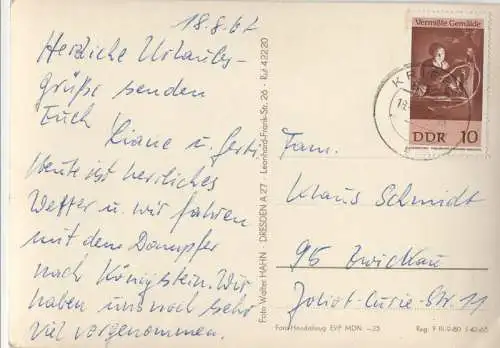 18.8.67
Herzliche Urlaubs-
grüße senden
Euch
Liane u. Gerti
Heute ist herrliches
Wetter u. wir fahren
mit dem Dampfer
nach Königstein. Wir
haben uns noch sehr
viel vorgenommen.
Foto Walter HAHN · DRESDEN A 27 · Leonhard-Frank-Str. 26 · Ruf 42220
Vermißte Gemälde
DDR 10
Fam.
Klaus Schmidt
95 Zwickau
Joliot-Curie-Str. 11
Foto-Handabzug EVP MDN –,25
Reg.